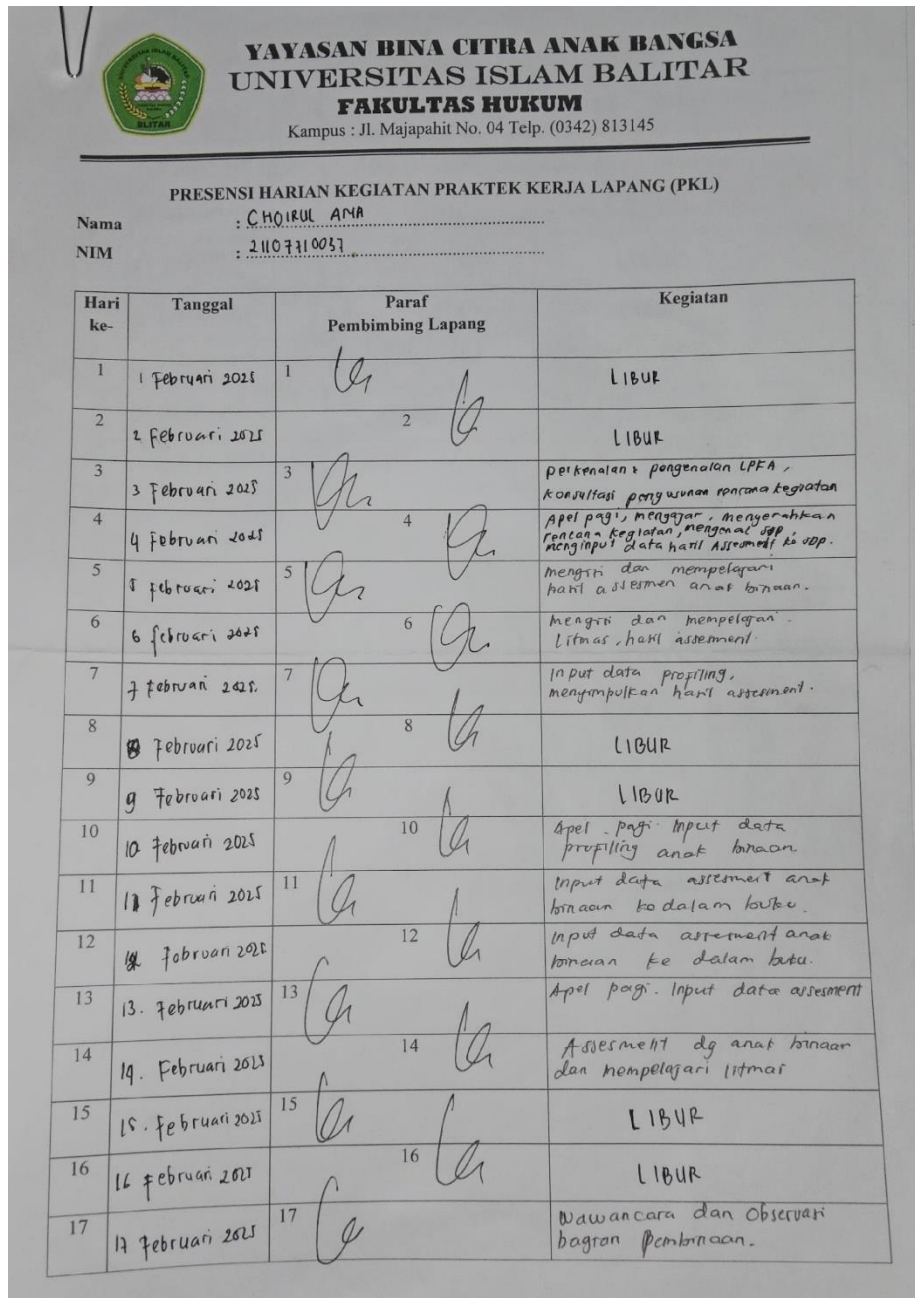 UNIVERSITAS ISLAM BALITAR
BLITAR
YAYASAN BINA CITRA ANAK BANGSA
UNIVERSITAS ISLAM BALITAR
FAKULTAS HUKUM
Kampus : Jl. Majapahit No. 04 Telp. (0342) 813145
PRESENSI HARIAN KEGIATAN PRAKTEK KERJA LAPANG (PKL)
Nama : CHOIRUL ANA
NIM : 21107710037
Hari ke- Tanggal Paraf Pembimbing Lapang Kegiatan
1 1 Februari 2025 1 LIBUR
2 2 Februari 2025 2 LIBUR
3 3 Februari 2025 3 perkenalan & pengenalan LPKA,
konsultasi penyusunan rencana kegiatan
4 4 Februari 2025 4 Apel pagi, mengajar, menyerahkan
rencana kegiatan, mengenal SDP,
menginput data hasil Assesment ke SDP.
5 5 Februari 2025 5 mengisi dan mempelajari
hasil assesmen anak binaan.
6 6 februari 2025 6 mengisi dan mempelajari
Litmas, hasil assesment.
7 7 februari 2025. 7 Input data profiling,
menyimpulkan hasil assesment.
8 8 Februari 2025 8 LIBUR
9 9 Februari 2025 9 LIBUR
10 10 februari 2025 10 Apel pagi. Input data
profiling anak binaan
11 11 Februari 2025 11 Input data assesment anak
binaan ke dalam buku.
12 12 Februari 2025 12 Input data assesment anak
binaan ke dalam buku.
13 13. Februari 2025 13 Apel pagi. Input data assesment
14 14. Februari 2025 14 Assesment dg anak binaan
dan mempelajari litmas
15 15. februari 2025 15 LIBUR
16 16 februari 2025 16 LIBUR
17 17 februari 2025 17 Wawancara dan Observasi
bagian Pembinaan.